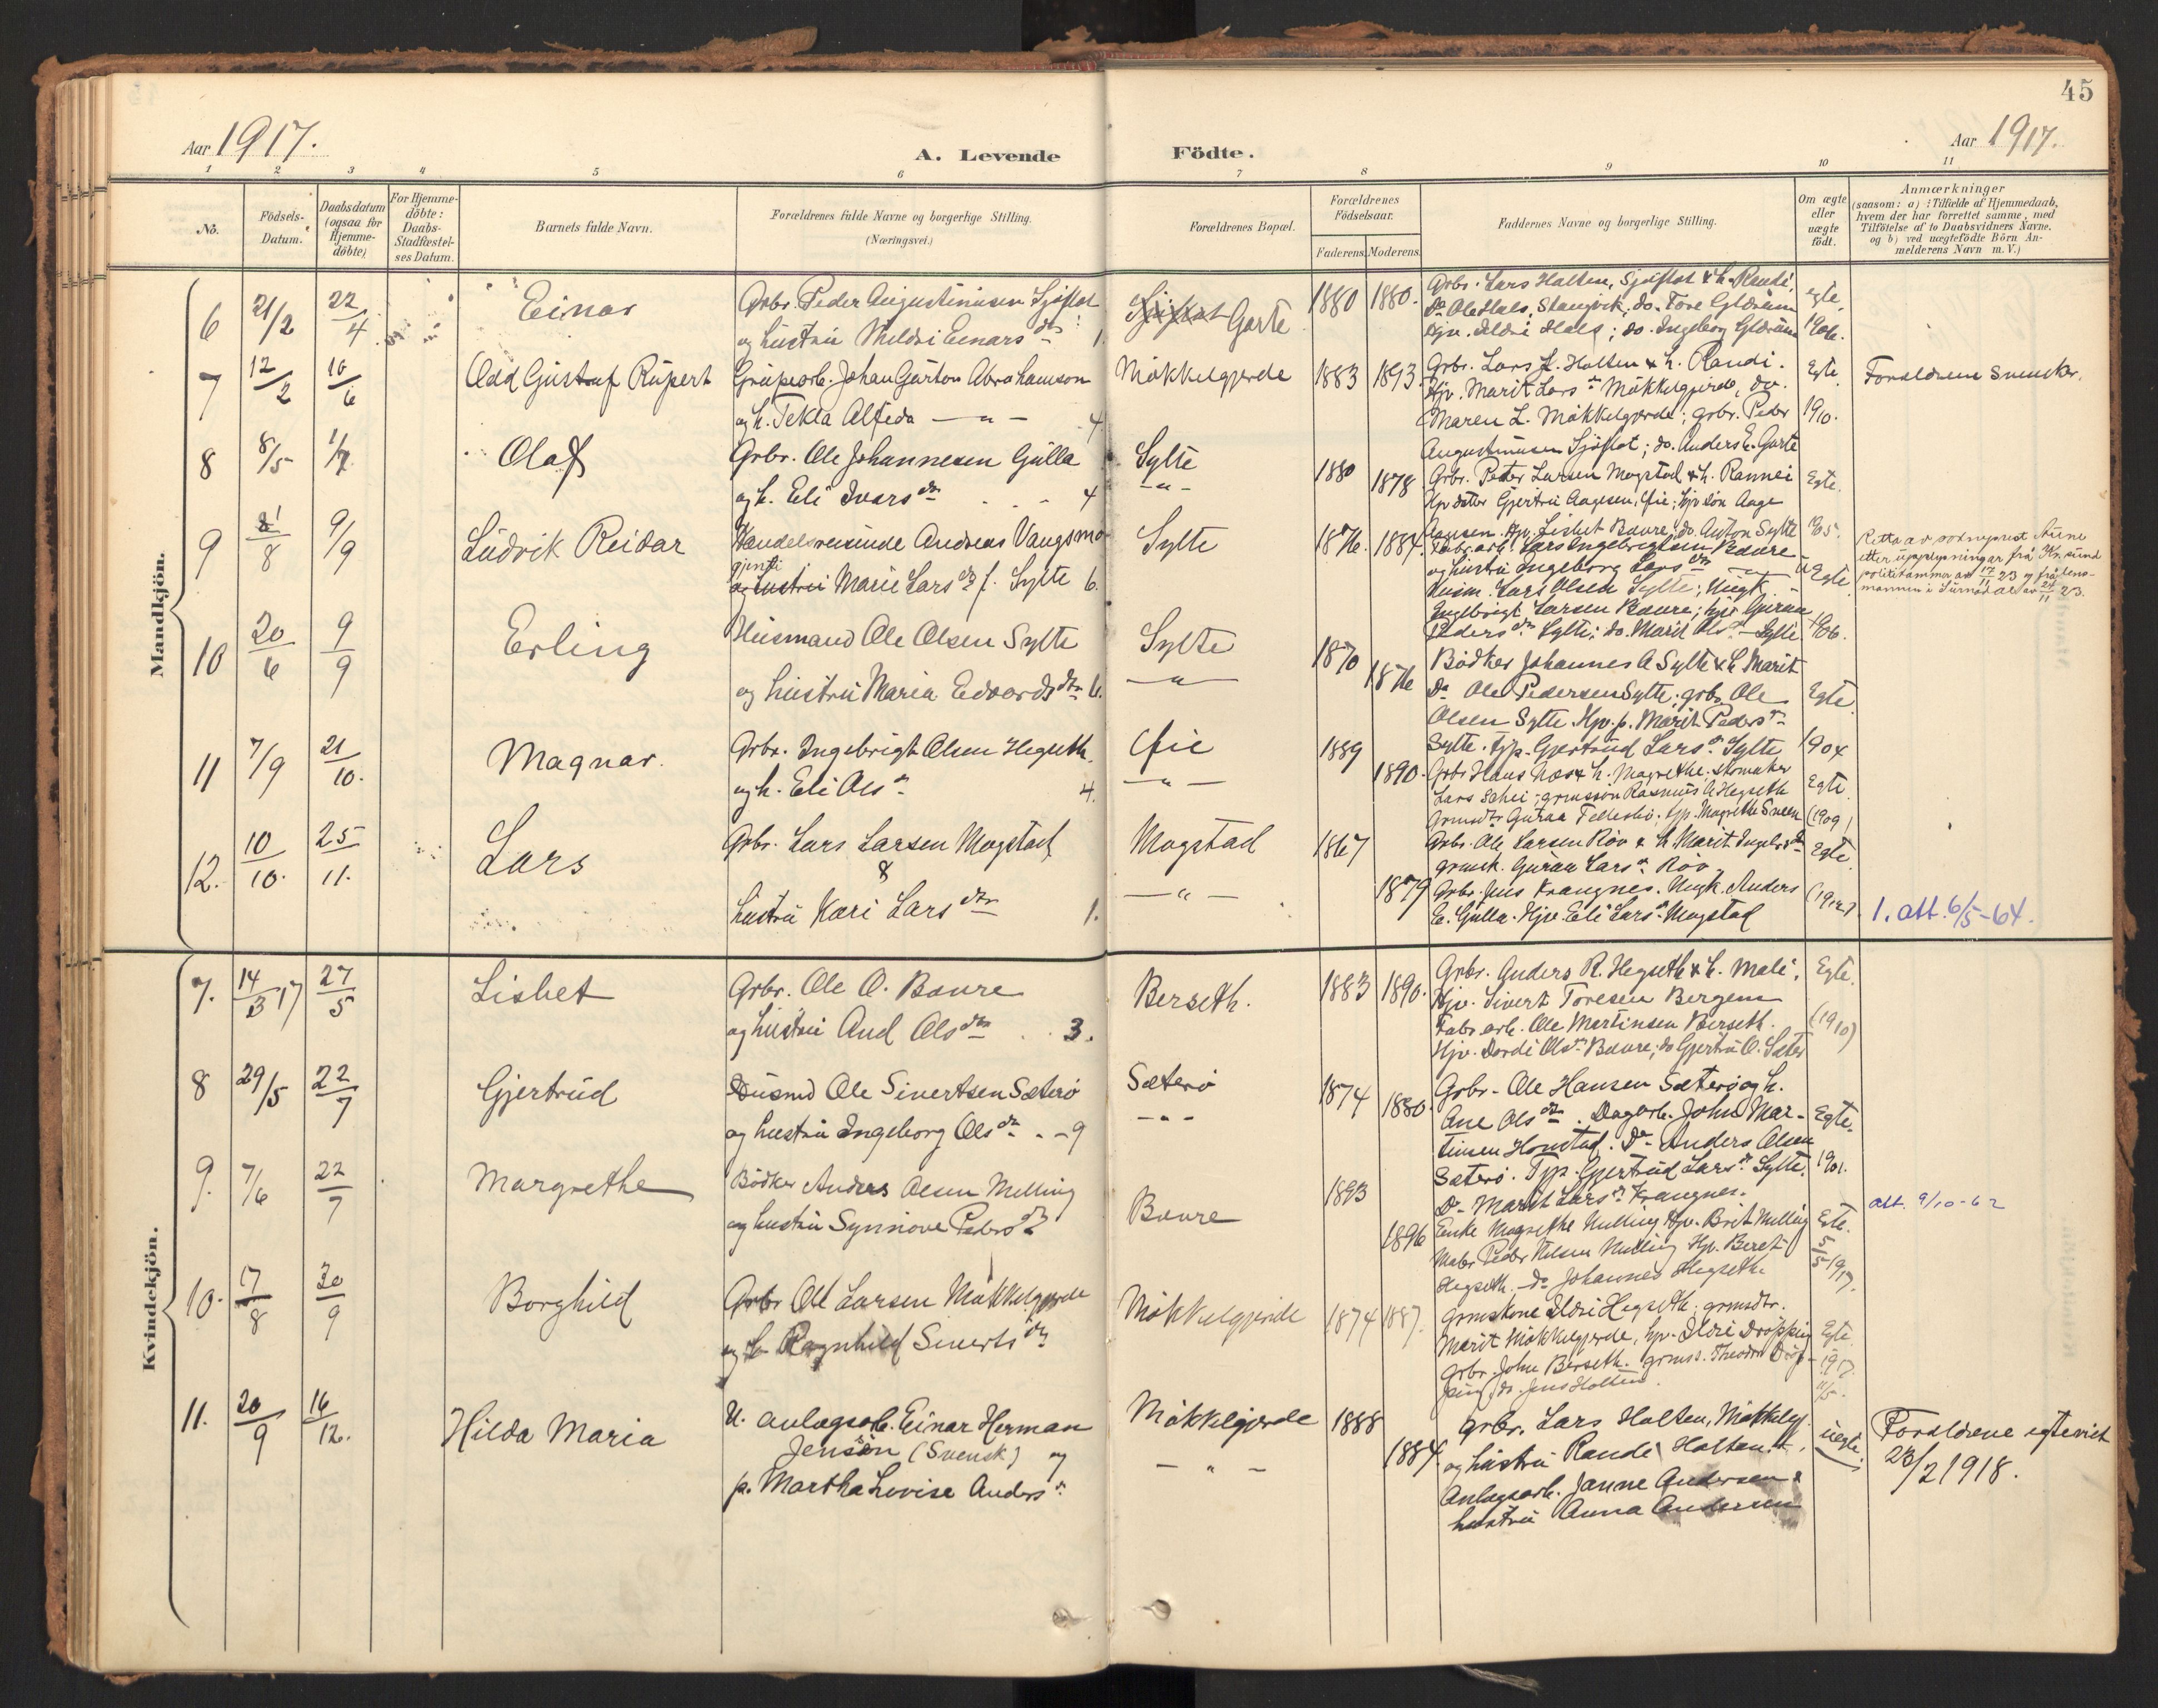 45
Aar 1917.
A. Levende Födte.
Aar 1917.
1 2 3 4 5 6 7 8 9 10 11
No.
Födsels-
Datum.
Daabsdatum
(ogsaa for
Hjemme-
döbte)
For Hjemme-
döbte:
Daabs-
Stadfæstel-
ses Datum.
Barnets fulde Navn.
Forældrenes fulde Navne og borgerlige Stilling.
(Næringsvei.)
Forældrenes Bopæl.
Forældrenes
Födselsaar.
Faderens. Moderens.
Faddernes Navne og borgerlige Stilling.
Om ægte
eller
uægte
födt.
Anmærkninger
(saasom: a) i Tilfælde af Hjemmedaab,
hvem der har forrettet samme, med
Tilföielse af to Daabsvidners Navne.
og b) ved uægtefödte Börn An-
melderens Navn m. V.)
Mandkjön.
6 21/2 22/4 Einar
Grbr. Peder Augustinusen Sjöflot
og hustru Meldri Einarsdtr 1.
Garte
1880 1880.
Grbr. Lars Halten, Sjöflot & h. Randi,
Do Ole Hals, Stangvik, do. Tore
Hjv. Ildri Hals; do. Ingeborg
egte,
1906.
7 12/2 10/6 Odd Gustuf Rupert
Grubearb. Johan Garton Abrahamson
og h. Tekla Alfeda — " — 4
Mökkelgjerde
1883 1893
Grbr. Lars L. Halten & h. Randi.
Hjv. Marit Larsdr Mökkelgjerde, do.
Maren L. Mökkelgjerde; grbr. Peder
Augustinusen Sjöflot; do. Anders E. Garte
Egte
1910.
Forældrene svensker.
8 8/5 1/7 Olaf
Grbr. Ole Johannesen Gulla
og h. Eli Ivarsdtr 4
Sylte
— " —
1880 1878
Grbr. Peter Larsen Mogstad & h. Rannei
Hjv dater Gjertru Aagesen, Øie; hjv sön Aage
Aagesen. Hjv. Lisbet Bævre; do. Anton Sylte
Egte.
1905.
9 1/8 9/9 Ludvik Reidar
Handelsreisende Andreas Vangsmo
gjenti
og hustru Marie Larsdtr f. Sylte 6.
Sylte
1876. 1884.
Fabr. arb. Lars Ingebrigtsen Bævre
og hustru Ingeborg Larsdtr — " —
Husm. Lars Olsen Sylte; Ungk.
Engelbrigt Larsen Bævre; hjv Guraa
Pedersdtr Sylte; do. Marit Olsdr Sylte
Egte
1906.
Retta av sokneprest Aune
etter upplysningar frå Kr.sund
politikammer av 17/11 23 og frå lens-
mannen i Surnadal av 24/11 23.
10 20/6 9/9 Erling
Husmand Ole Olsen Sylte
og hustru Maria Edvardsdtr 6.
Sylte
— " —
1870 1876
Bödker Johannes A Sylte & h. Marit
Do Ole Pedersen Sylte; grbr Ole
Olsen Sylte. Hjv. p. Marit Pedersdr
Sylte. Tjp. Gjertrud Larsdr Sylte
Egte.
1904
11 7/9 21/10. Magnar.
Grbr. Ingebrigt Olsen Hegseth
og h. Eli Olsdr 4.
Øie
— " —
1889 1890.
Grbr Hans Næs & h. Magrethe. skomaker
Lars Schei; grmssön Rasmus A. Hegseth
Grmsdtr Guraa Fellesbö. tjp. Magrethe Sveen
Egte.
(1909)
12. 10/10. 25/11. Lars
Grbr. Lars Larsen Mogstad
&
hustru Kari Larsdtr 1.
Mogstad
— " —
1867 1879
Grbr. Ole Larsen Röv & h. Marit
grmsk. Guraa Larsdr Röv.
Grbr. Jens Krangnes. Ungk. Anders
E. Gulla. Hjv. Eli Larsdr Mogstad
Egte.
(1912)
1. att. 6/5-64.
Kvindekjön.
7. 14/3 17 27/5 Lisbet
Grbr. Ole O. Bævre
og hustru And Olsdtr 3.
Berseth.
1883 1890.
Grbr. Anders R. Hegseth & h. Mali.
Hjv. Sivert Toresen Bergem
Fabr arb. Ole Martinsen Berseth.
Hjv. Dordi Olsdr Bævre; do Gjertru O. Sæter
Egte.
(1910)
8 29/5 22/7 Gjertrud
Husmd Ole Sivertsen Sæterö
og hustru Ingeborg Olsdr 9
Sæterö
— " —
1874 1880.
Grbr. Ole Hansen Sæterö og h.
Ane Olsdtr. Dagarb. John Mar-
tinsen Honstad. Do Anders Olsen
Sæterö. Tjp. Gjertrud Larsdr Sylte.
Do Marit Larsdr Krangnes.
Egte.
1901.
9. 7/6 22/7 Margrethe
Bödker Anders Olsen Melling
og hustru Synnöve Pedersdtr
Bævre
1893 1896
Enke Magrethe Melling Hjv. Brit Melling
Maler Peder Nilsen Melling Hjv. Beret
Hegseth. Do Johannes Hegseth
Egte.
5/5 1917.
att. 9/10-62
10. 17/8 30/9 Borghild
Grbr Ole Larsen Mökkelgjerde
og h Ragnhild Sivertsdtr
Mökkelgjerde
1874 1887.
Grmskone Ildri Hegseth; grmsdtr.
Marit Mökkelgjerde, hjv. Ildri Dröpping
grbr. John Berseth. grmss. Theodor Dröp-
ping, do. Jens Holten.
Egte.
1917.
11. 20/9 16/12. Hilda Maria
U. anlægsarb. Einar Herman
Jensön (Svensk) og
p. Martha Lovise Andersdr
Mökkelgjerde
— " —
1888 1884.
Grbr. Lars Halten, Mökkelg.
og hustru Randi Halten.
Anlægsarb. Janne Andersen &
hustru Anna Andersen
uegte.
Forældrene egteviet
23/2 1918.